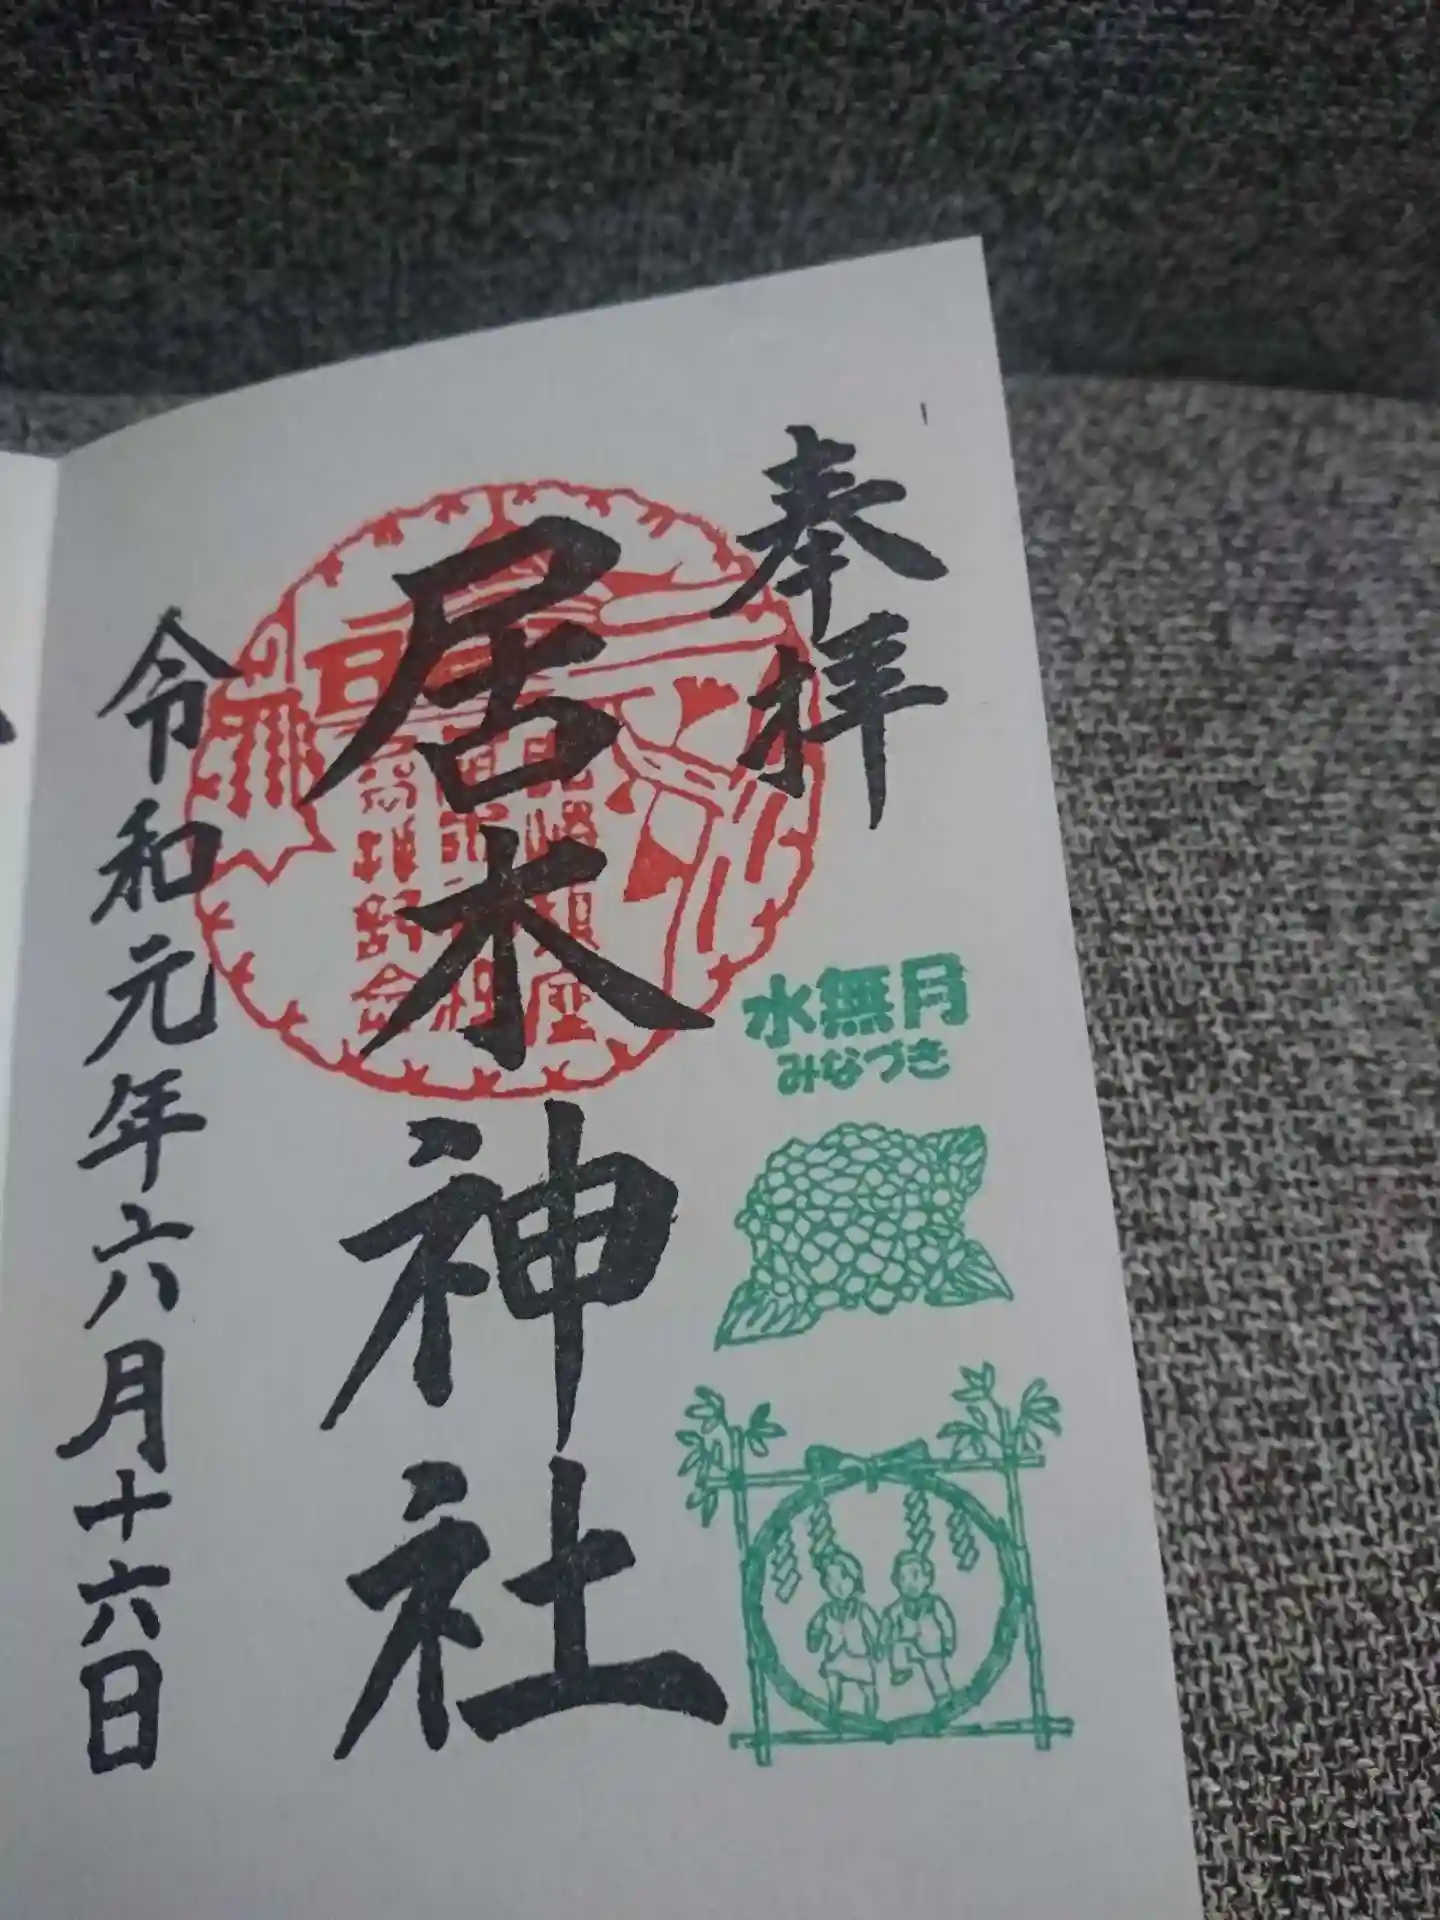 奉拝
居木神社
水無月
みなづき
令和元年六月十六日